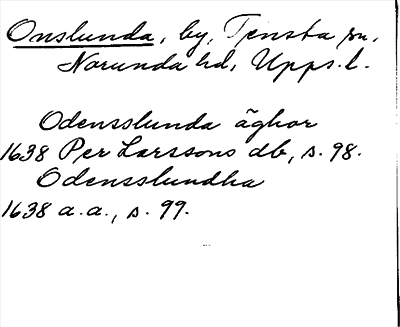 Onslunda, by, Tensta sn,
Norunda hd, Upps. l.
Odensslunda äghor
1638 Per Larssons db, s. 98.
Odensslundha
1638 a.a., s. 99.